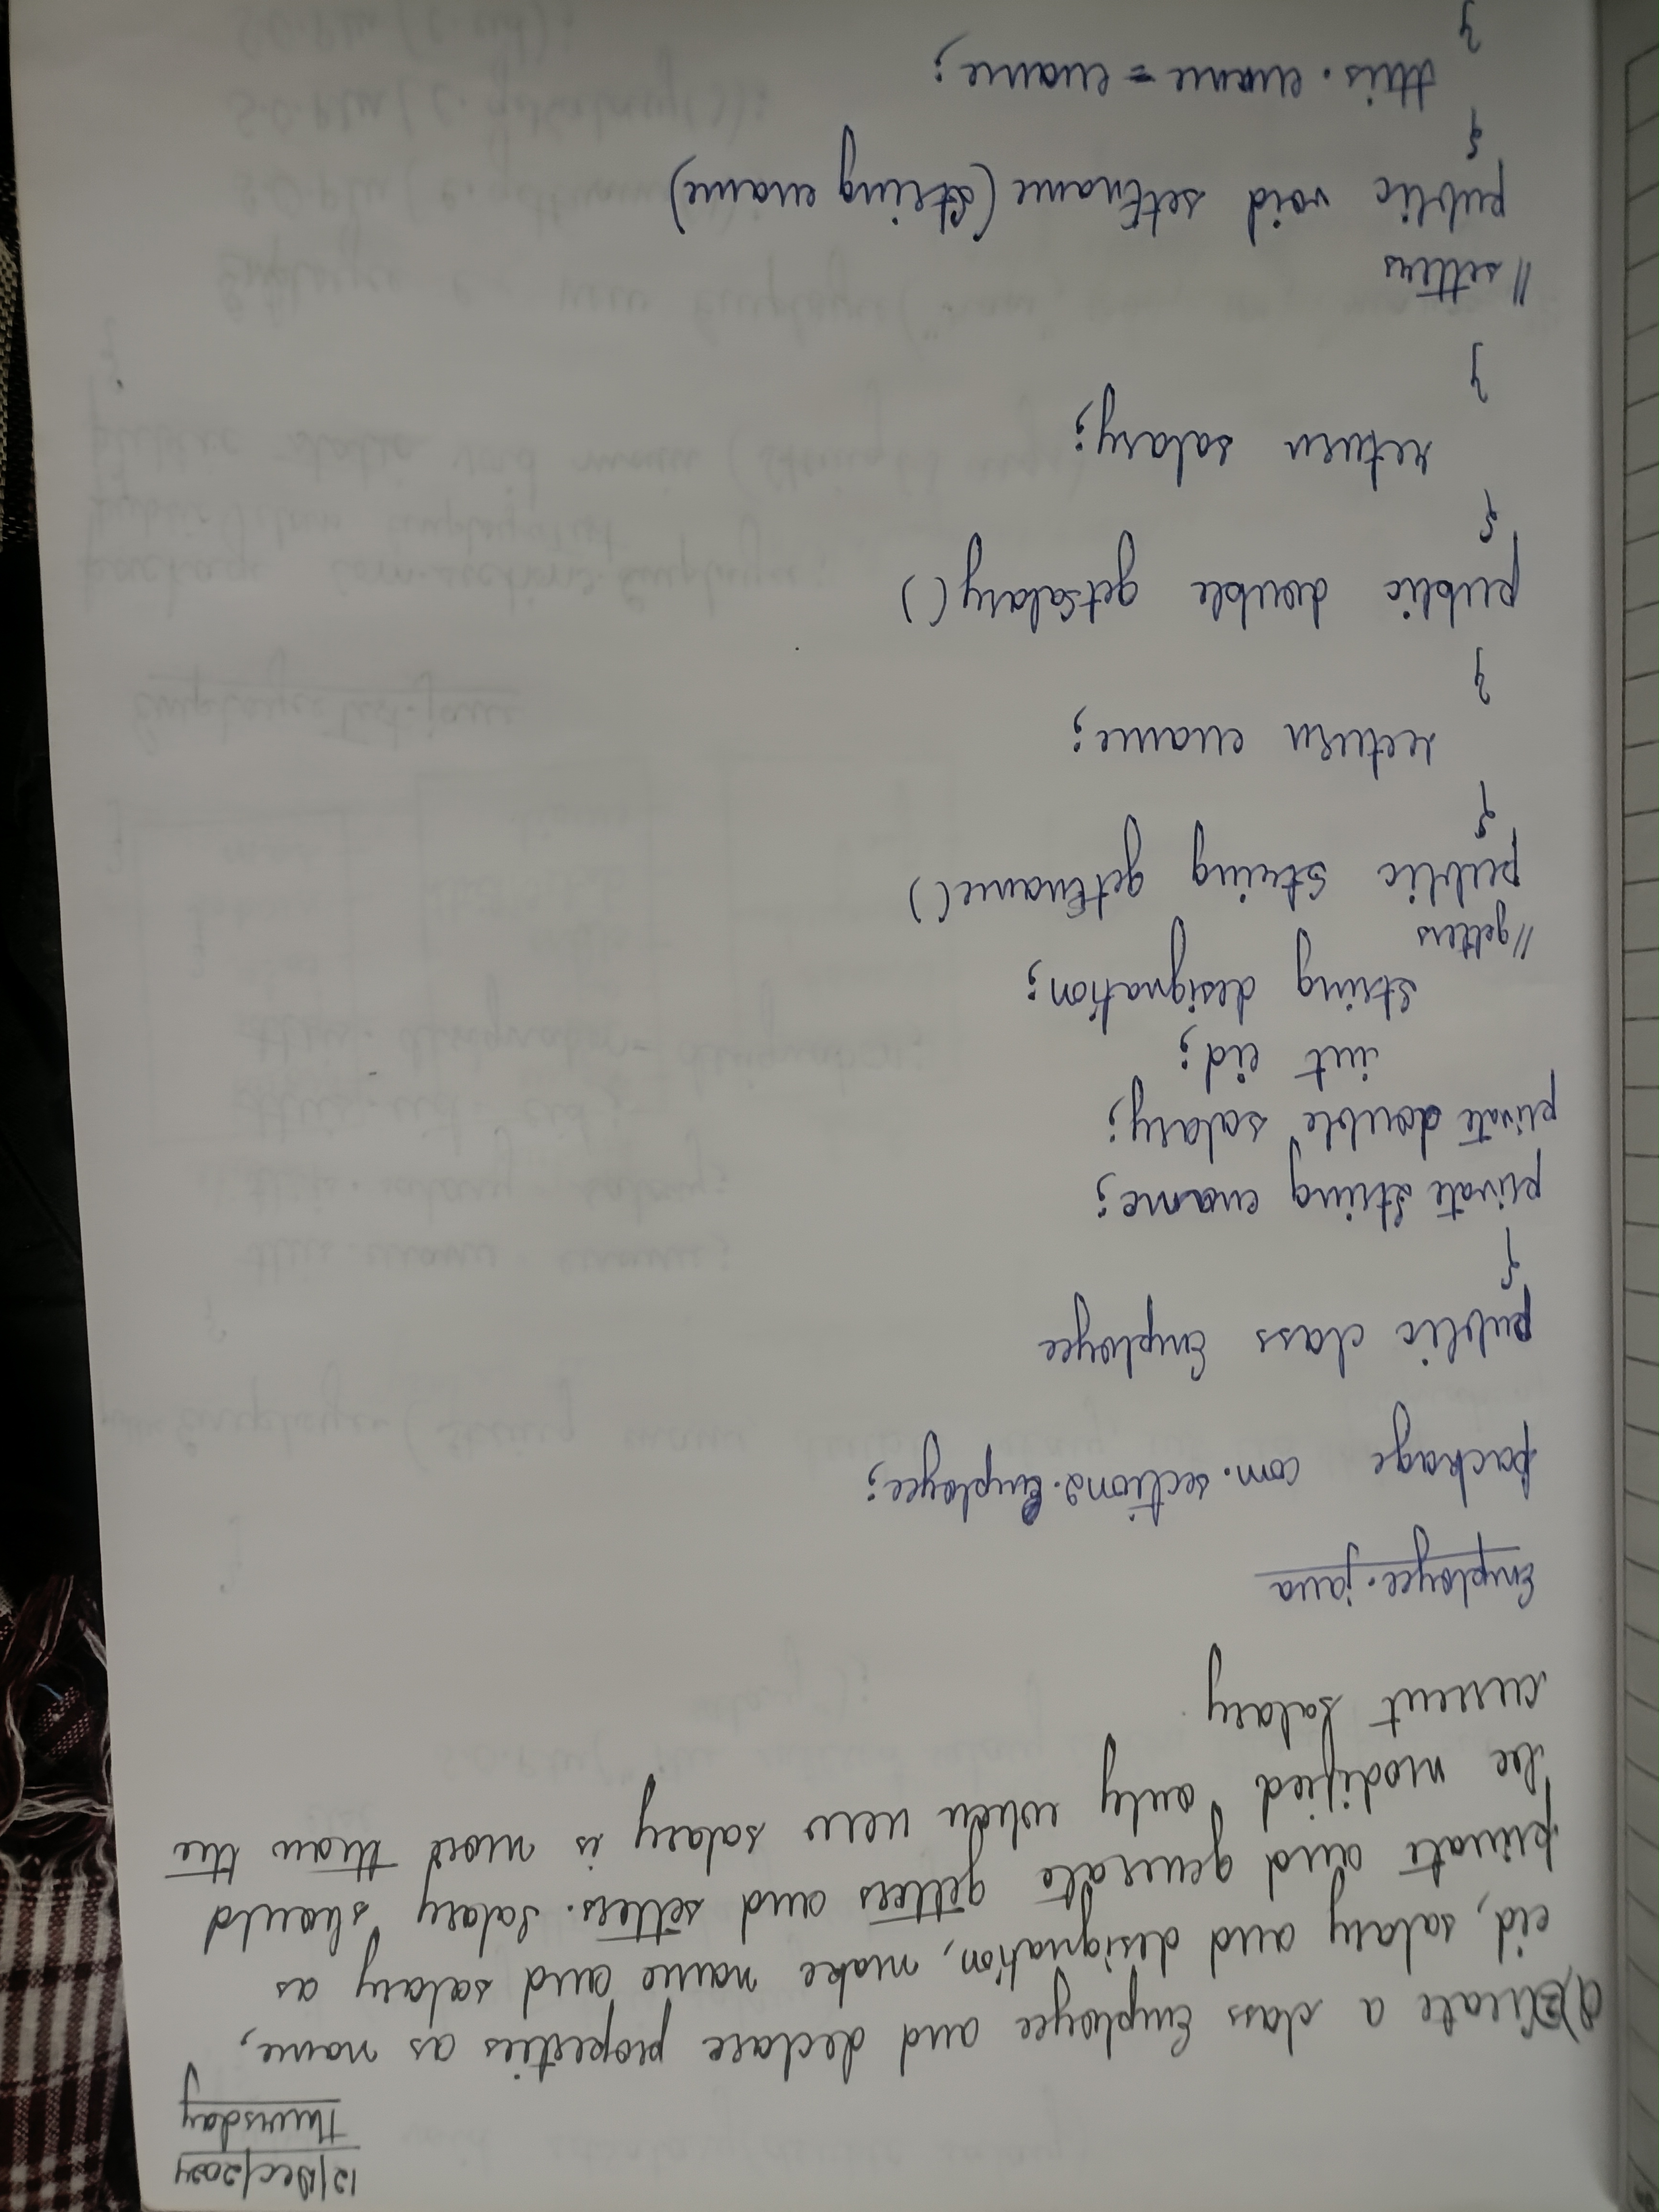 12/Dec/2024
Thursday
Q)② Create a class Employee and declare properties as name,
eid, salary and designation, make name and salary as
private and generate getters and setters. Salary should
be modified only when new salary is more than the
current salary.
Employee.java
package com.section2.Employee;
public class Employee
{
private String ename;
private double salary;
int eid;
String designation;
//getters
public String getEname()
{
return ename;
}
public double getSalary()
{
return salary;
}
// setters
public void setEname(String ename)
{
this.ename = ename;
}